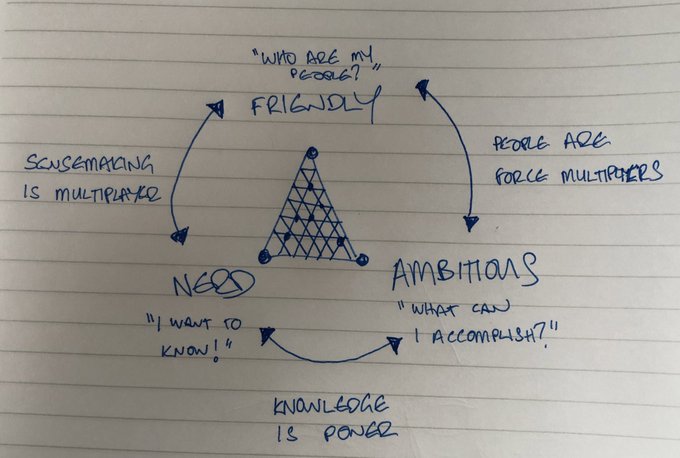 "WHO ARE MY
PEOPLE?"
FRIENDLY
SENSEMAKING
IS MULTIPLAYER
PEOPLE ARE
FORCE MULTIPLIERS
NERD
"I WANT TO
KNOW!"
AMBITIOUS
"WHAT CAN
I ACCOMPLISH?"
KNOWLEDGE
IS POWER